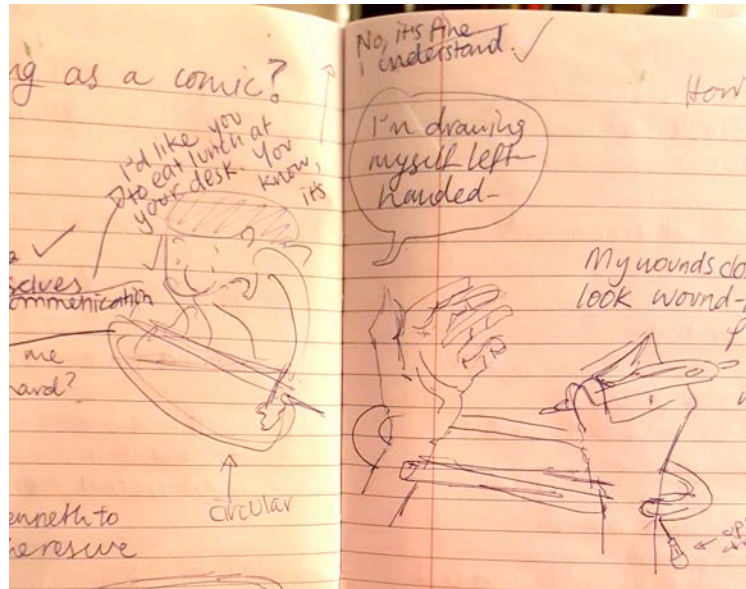 ng as a comic?
I'd like you
to eat lunch at
your desk. You
know,
it's
selves
communication
me
hard?
circular
enneth to
No, it's fine
i understand.
I'm drawing
myself left-
handed-
How
My wounds do
look wound-